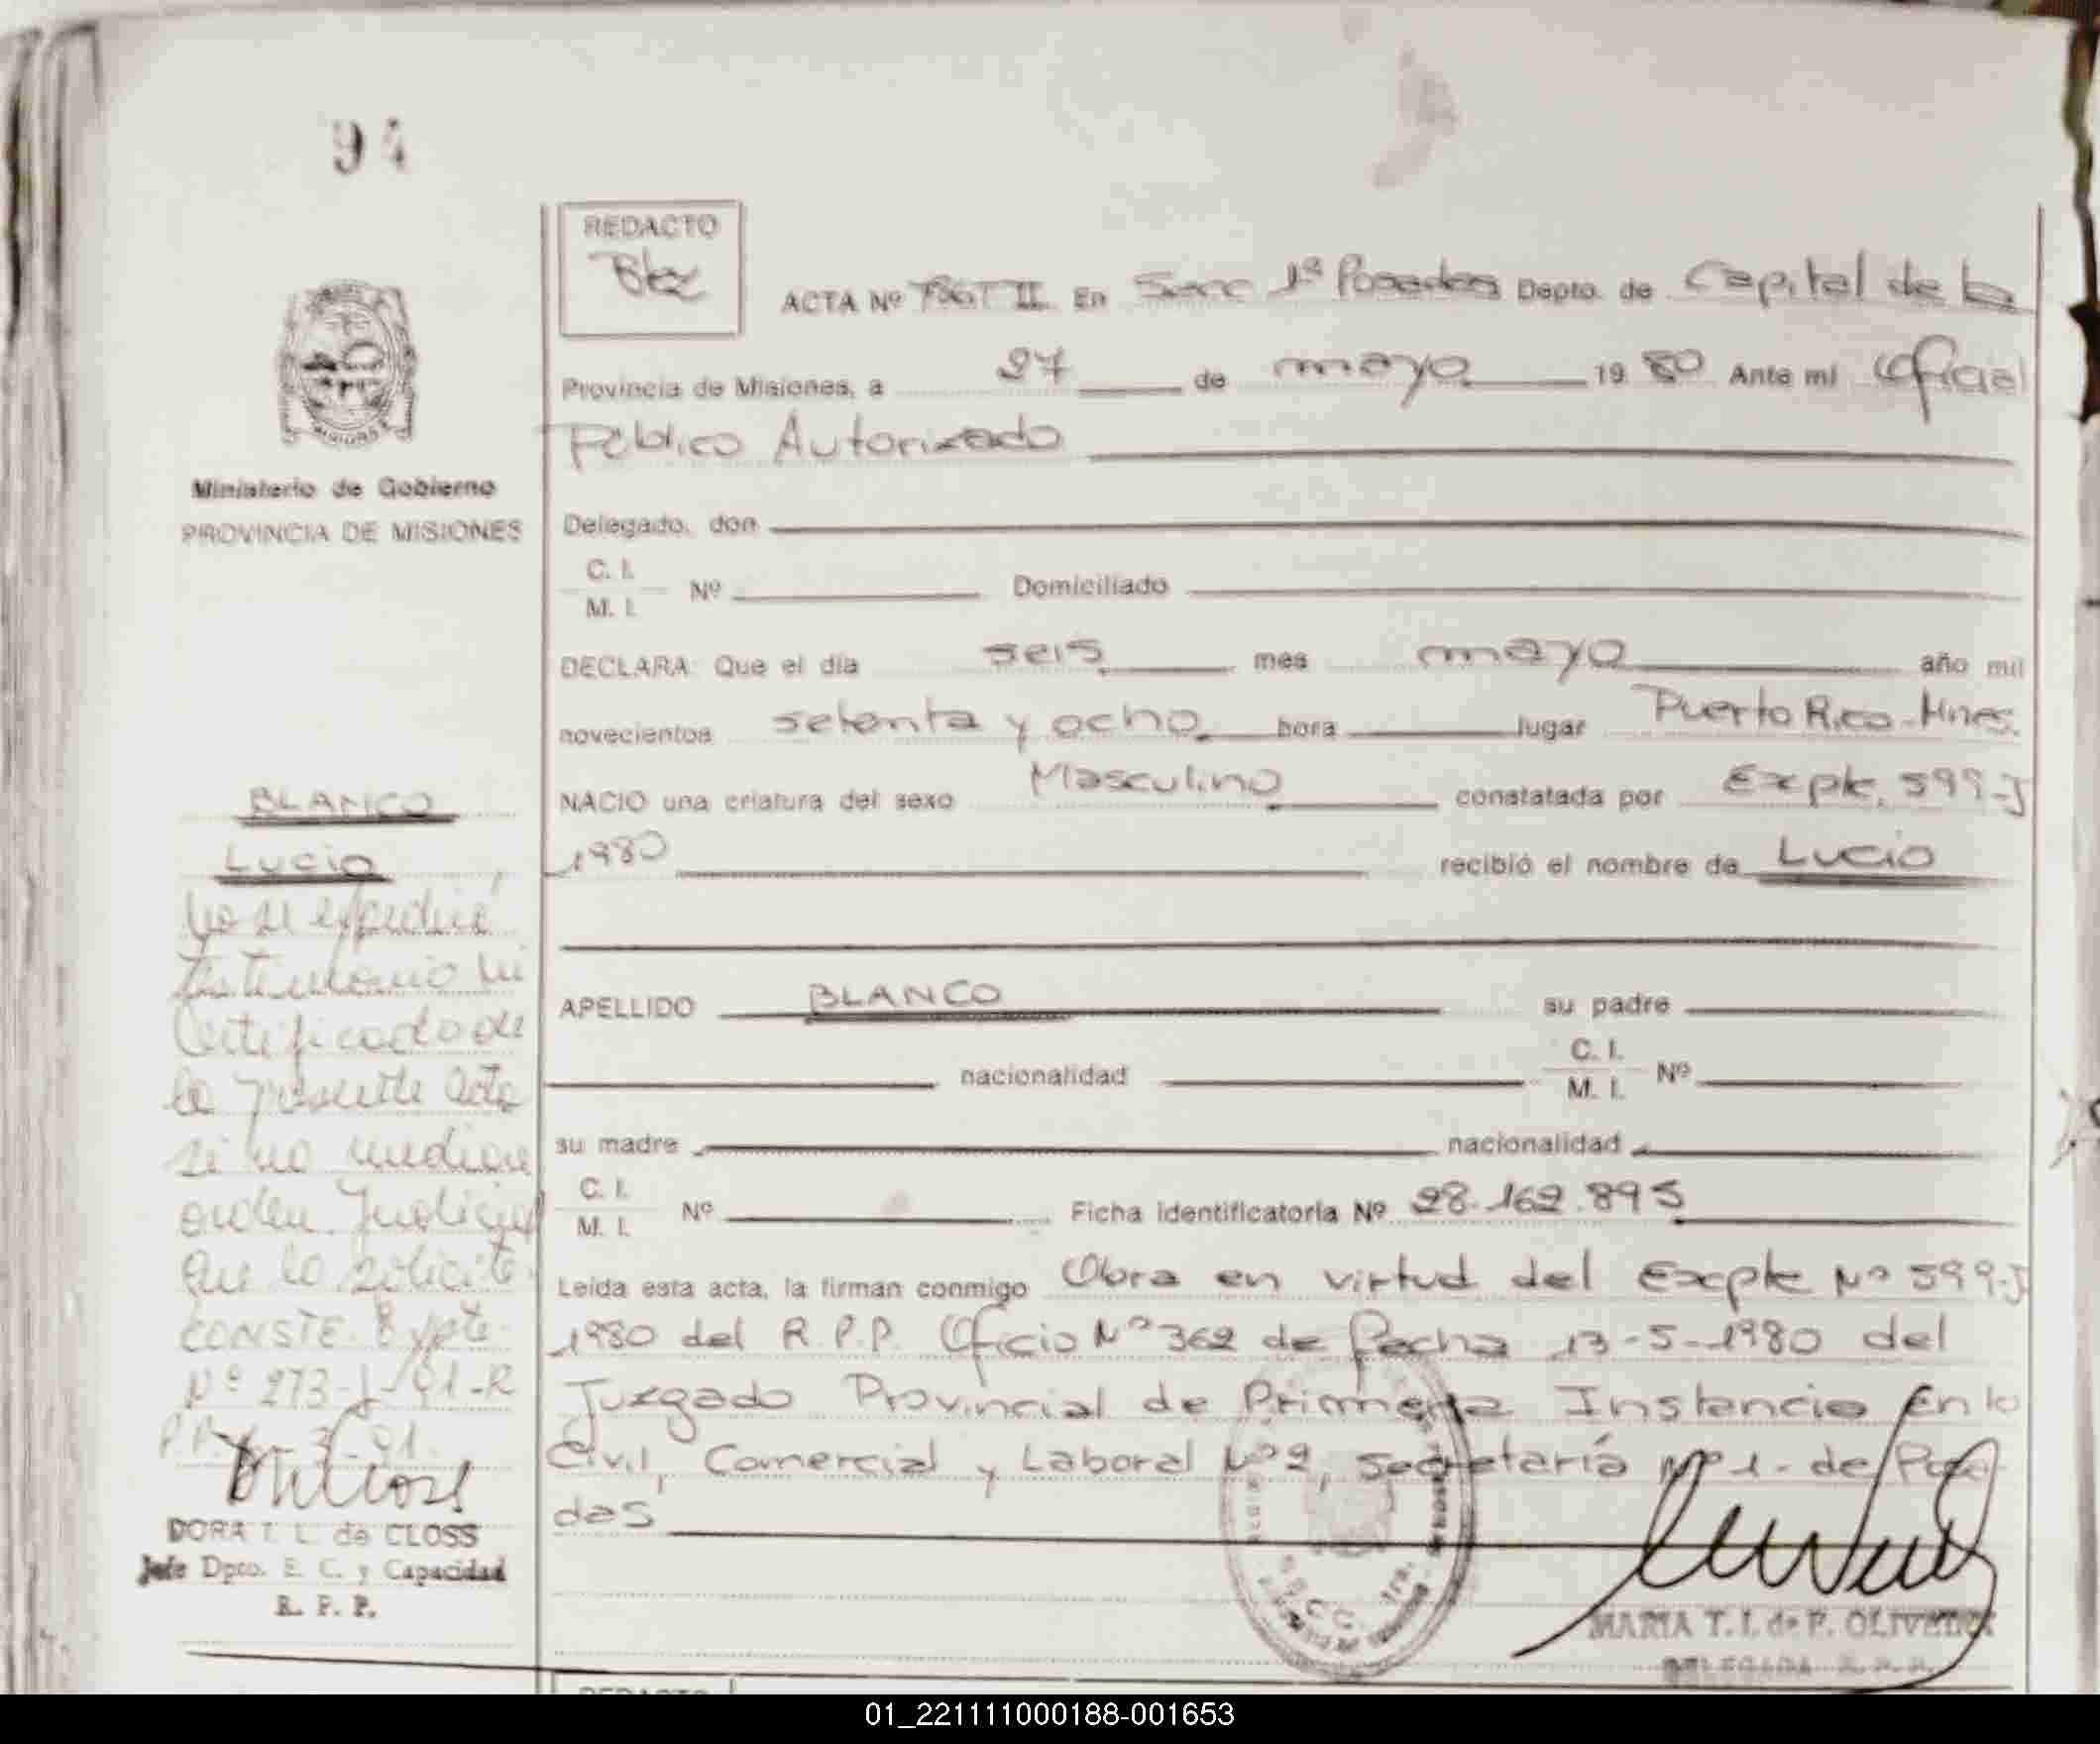 94
REDACTO
ACTA Nº II En Secc 1ª Posadas Depto. de Capital de la
Provincia de Misiones, a 27 de mayo 1980 Ante mi Oficial
Público Autorizado
Ministerio de Gobierno
PROVINCIA DE MISIONES
Delegado, don
C. I.
M. I. Nº Domiciliado
DECLARA: Que el día seis mes mayo año mil
novecientos setenta y ocho hora lugar Puerto Rico-Mnes.
NACIO una criatura del sexo Masculino constatada por Expte. 599-J
1980 recibió el nombre de Lucio
APELLIDO BLANCO su padre
nacionalidad C. I.
M. I. Nº
su madre nacionalidad
C. I.
M. I. Nº Ficha identificatoria Nº 28.162.895
Leída esta acta, la firman conmigo Obra en virtud del Expte Nº 599-J
1980 del R.P.P. Oficio Nº 362 de fecha 13-5-1980 del
Juzgado Provincial de Primera Instancia en lo
Civil, Comercial y Laboral Nº 2, Secretaría Nº 1 - de Posa
das
BLANCO
Lucio
No se expedirá
testimonio ni
Certificado de
la presente acta
si no media
orden Judicial
que lo solicite.
CONSTE. Expte.
Nº 273-J-91-R
DORA T. L. de CLOSS
Jefe Dpto. E. C. y Capacidad
R. P. P.
MARIA T. I. de P. OLIVEIRA
DELEGADA R.P.P.
01_221111000188-001653